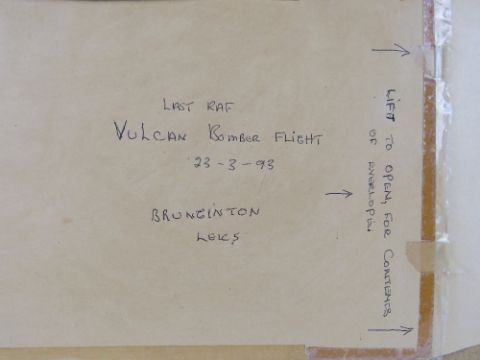 LAST RAF
VULCAN BOMBER FLIGHT
23-3-93
BRUNGINTON
LEICS
LIFT TO OPEN, FOR CONTENTS
OF ENVERLOPE.